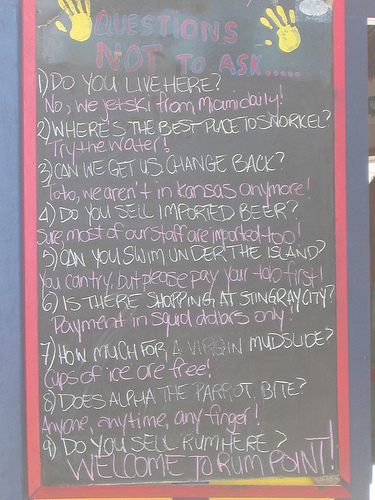 QUESTIONS
NOT TO ASK.....
1) DO YOU LIVE HERE?
No, we jetski from Miami daily!
2) WHERE'S THE BEST PLACE TO SNORKEL?
Try the water!
3) CAN WE GET U.S. CHANGE BACK?
Toto, we aren't in Kansas anymore!
4) DO YOU SELL IMPORTED BEER?
Sure, most of our staff are imported too!
5) CAN YOU SWIM UNDER THE ISLAND?
You can try, but please pay your tab first!
6) IS THERE SHOPPING AT STINGRAY CITY?
Payment in squid dollars only!
7) HOW MUCH FOR A VIRGIN MUDSLIDE?
Cups of ice are free!
8) DOES ALPHA THE PARROT BITE?
Anyone, anytime, any finger!
9) DO YOU SELL RUM HERE?
WELCOME TO RUM POINT!